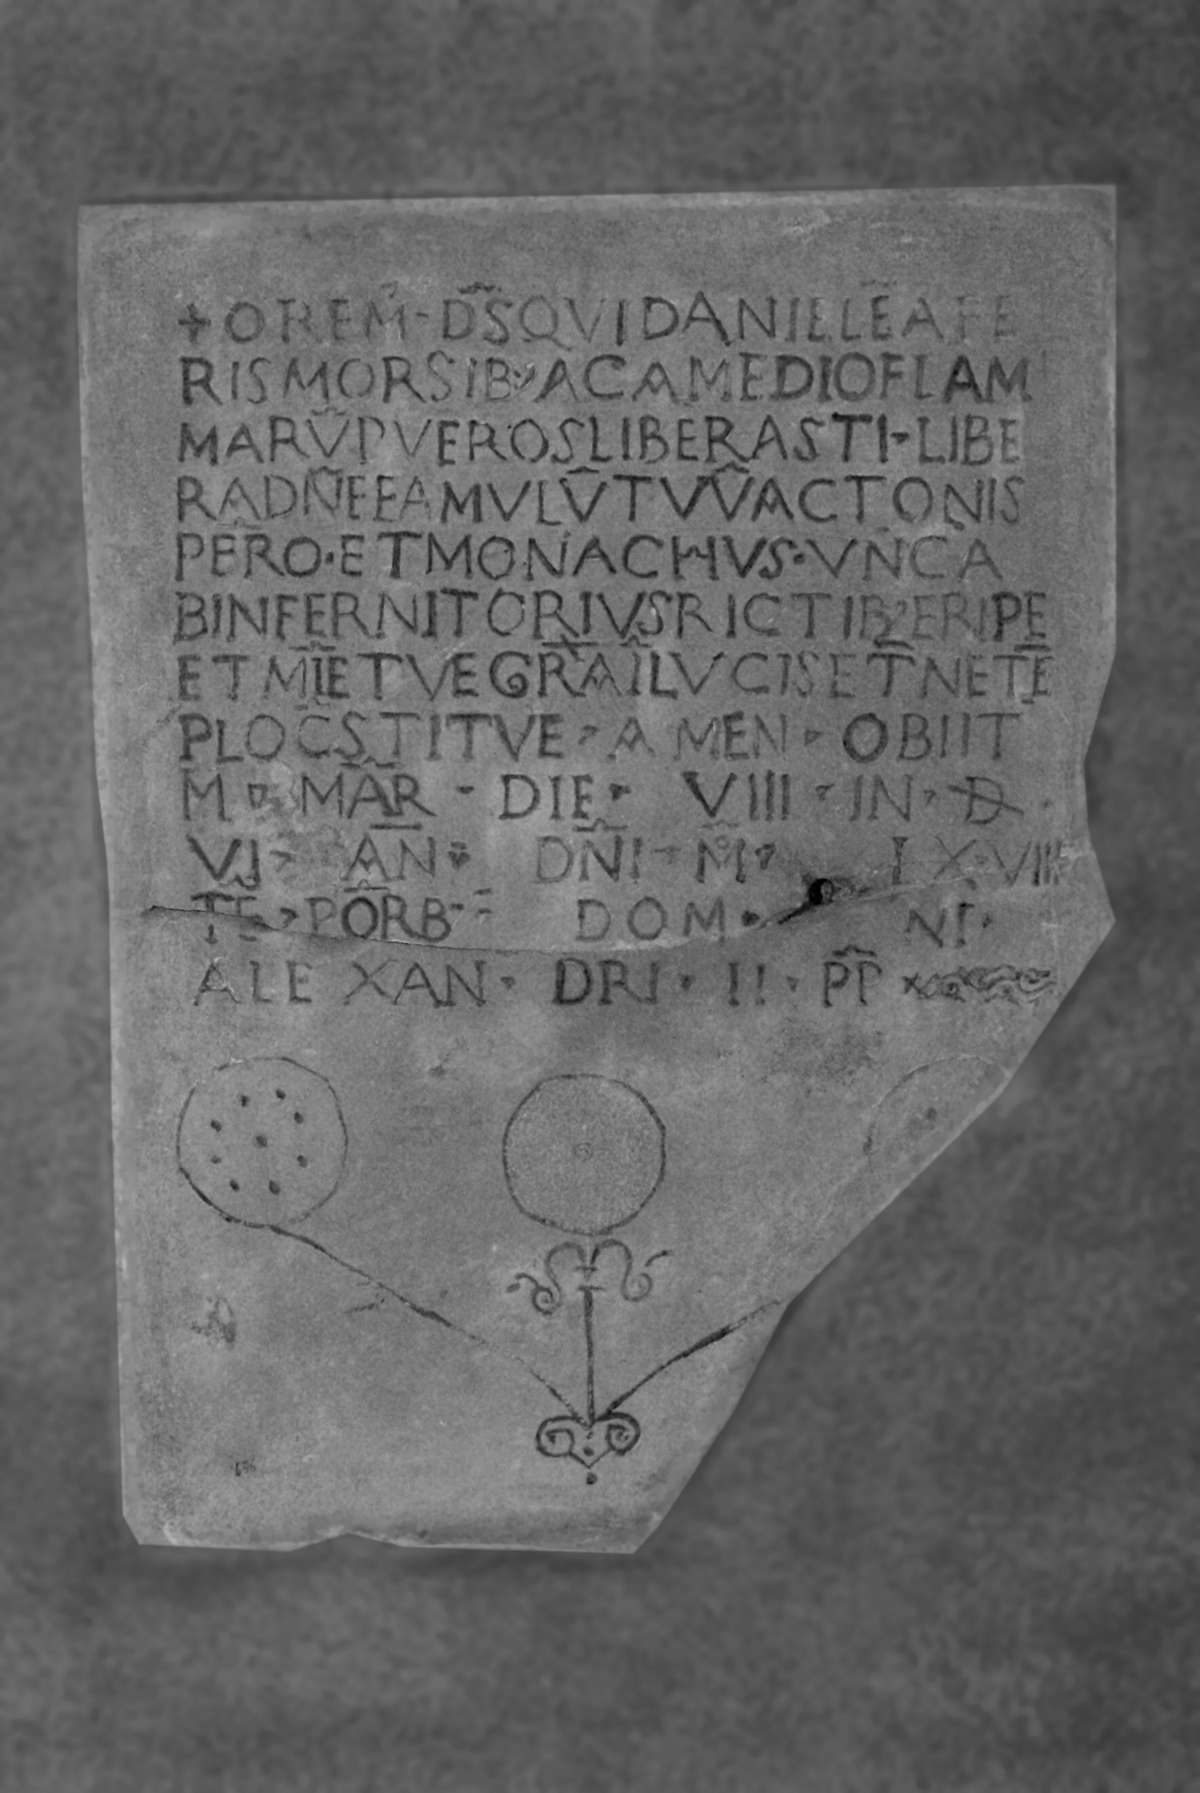 + OREM · D̅S̅ QVI DANIELĒ A FE
RIS MORSIB; AC A MEDIO FLAM
MARV̅ PVEROS LIBERASTI · LIBE
RA DN̅E FAMVLV̅ TVV̅ ACTONIS
PERO · ET MONACHVS · VNC A
B INFERNI TORIVS RICTIB; ERIPE
ET MI̅E TVE GRA̅ I̅ LVCIS ET̅NE TE̅
PLO CSTITVE · AMEN · OBIIT
M · MAR̅ · DIE · VIII · IN · D ·
VI · AN̅ · DN̅I · M̊ · I X · VIII
TE̅ · PORB · DOM · NI ·
ALEXAN · DRI · II · PP̅